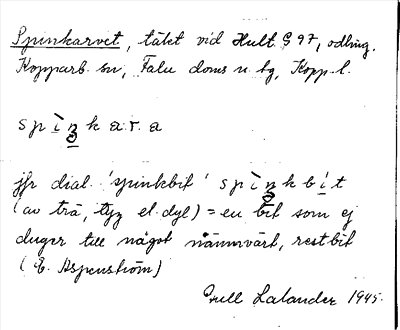 Spinkarvet, täkt vid Hult §97, odling.
Kopparb. sn, Falu doms n bg, Kopp. l.
spìŋkara
jfr dial. 'spinkbit' spìŋkbit
(av trä, tyg el. dyl) = en bit som ej
duger till något nämnvärt, restbit
(E. Aspenström)
Gull Lalander 1945.